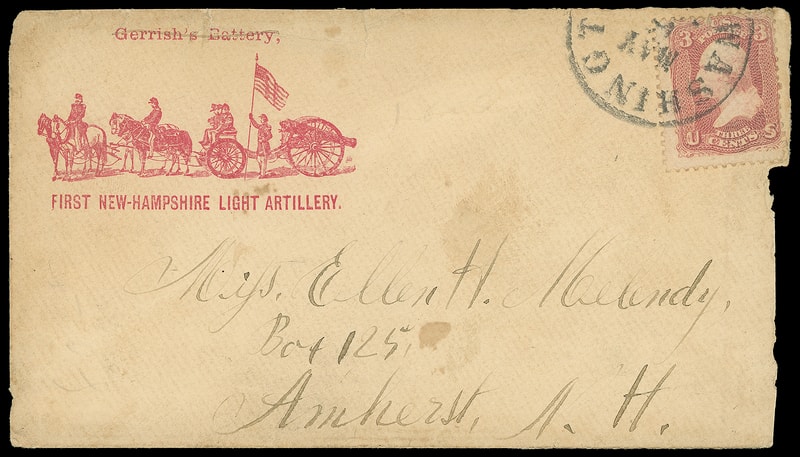 Gerrish's Battery,
FIRST NEW-HAMPSHIRE LIGHT ARTILLERY.
WASHINGT
MAY
3 POSTAGE 3
U THREE CENTS S
Miss. Ellen H. Melendy,
Box 125,
Amherst, N. H.